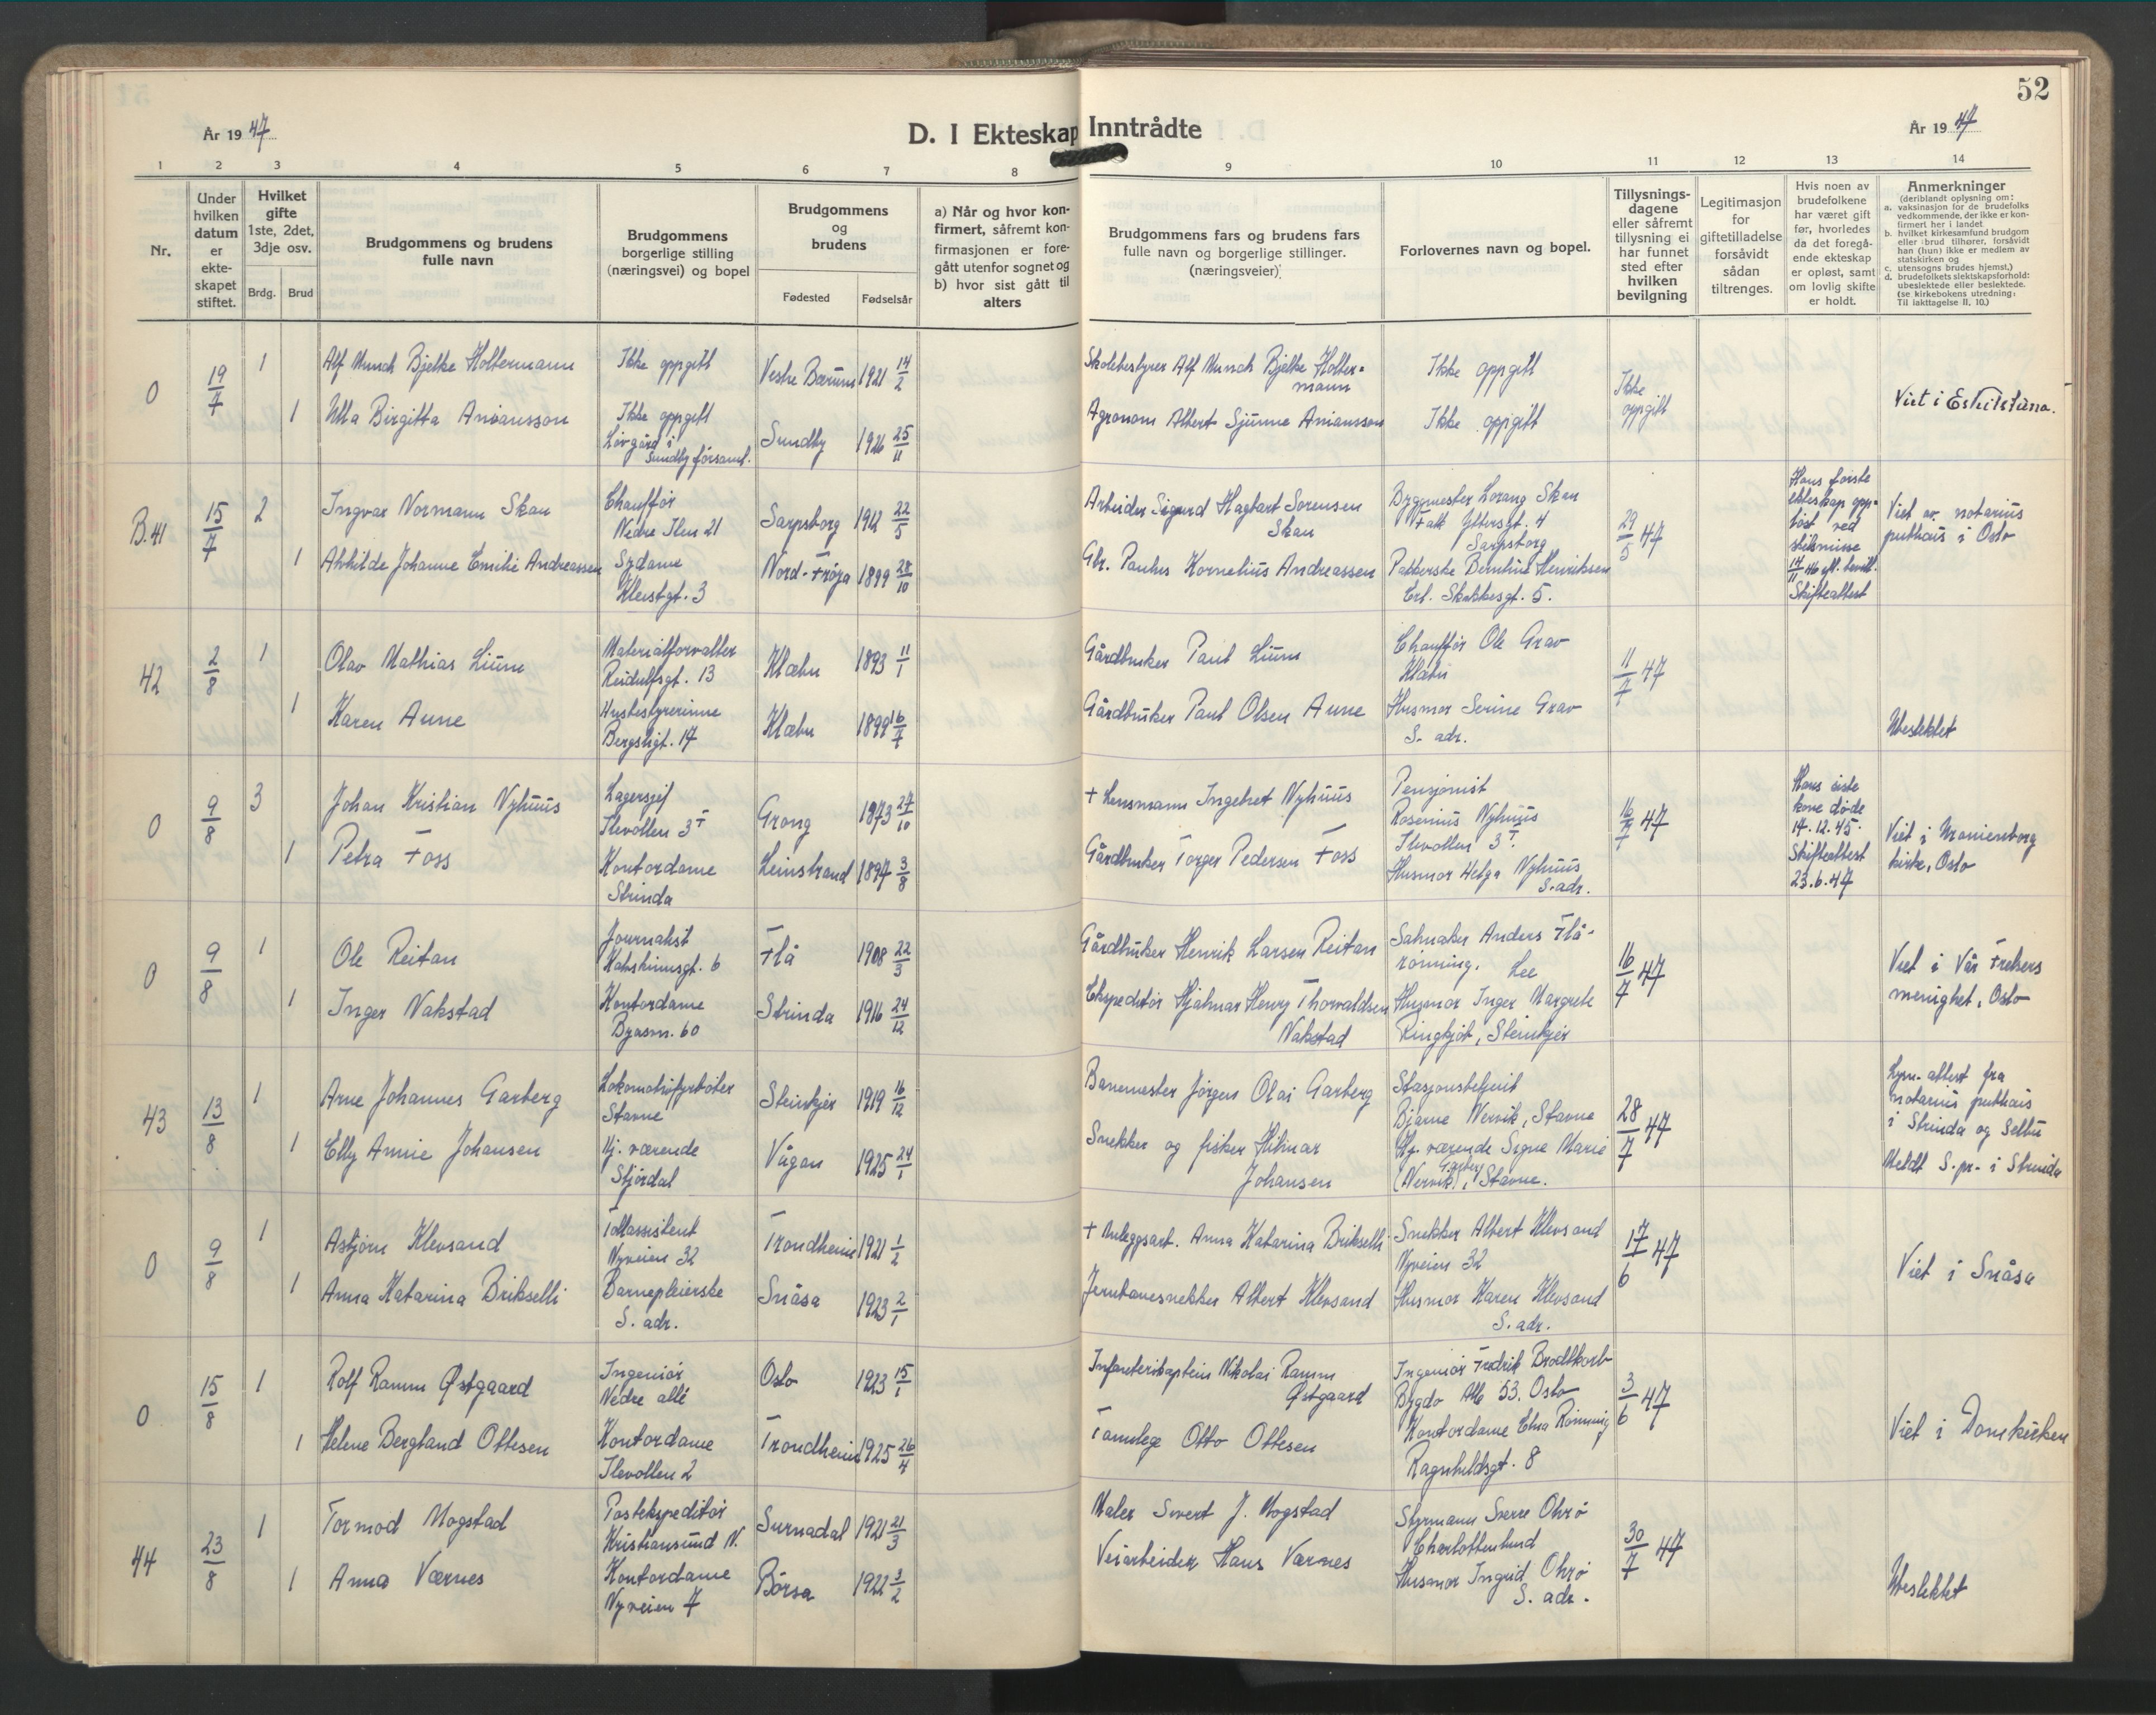 52
År 1947
D. I Ekteskap Inntrådte
År 1947
1 2 3 4 5 6 7 8 9 10 11 12 13 14
Nr.
Under
hvilken
datum
er
ekte-
skapet
stiftet.
Hvilket
gifte
1ste, 2det,
3dje osv.
Brdg. Brud
Brudgommens og brudens
fulle navn
Brudgommens
borgerlige stilling
(næringsvei) og bopel
Brudgommens
og
brudens
Fødested Fødselsår
a) Når og hvor kon-
firmert, såfremt kon-
firmasjonen er fore-
gått utenfor sognet og
b) hvor sist gått til
alters
Brudgommens fars og brudens fars
fulle navn og borgerlige stillinger.
(næringsveier).
Forlovernes navn og bopel.
Tillysnings-
dagene
eller såfremt
tillysning ei
har funnet
sted efter
hvilken
bevilgning
Legitimasjon
for
giftetilladelse
forsåvidt
sådan
tiltrenges.
Hvis noen av
brudefolkene
har været gift
før, hvorledes
da det foregå-
ende ekteskap
er opløst, samt
om lovlig skifte
er holdt.
Anmerkninger
(deriblandt oplysning om:
a. vaksinasjon for de brudefolks
vedkommende, der ikke er kon-
firmert her i landet
b. hvilket kirkesamfund brudgom
eller brud tilhører, forsåvidt
han (hun) ikke er medlem av
statskirken og
c. utensogns brudes hjemst.)
d. brudefolkets slektskapsforhold:
ubeslektede eller beslektede.
(se kirkebokens utredning:
Til iakttagelse II, 10.)
0 19/7 1 Alf Munch Bjelke Holtermann Ikke oppgitt Vestre Bærum 1921 14/2 Skolebestyrer Alf Munch Bjelke Holter-
mann Ikke oppgitt Ikke
oppgitt Viet i Eskilstuna.
1 Ulla Birgitta Aniansson Ikke oppgitt
Lövgård i
Sundby församl. Sundby 1926 25/11 Agronom Albert Sjunne Aniansson Ikke oppgitt
B.41 15/7 2 Ingvar Normann Skau Chauffør
Nedre Ilen 21 Sarpsborg 1912 22/5 Arbeider Sigurd Hagbart Sorensen
Skau Byggmester Lorang Skau
Falk Yttersgt. 4
Sarpsborg 29/5 47 Hans første
ekteskap opp-
løst ved
skilsmisse
14/11 46 efl. bevill.
Skifteattest Viet av notarius
publicus i Oslo
1 Alvhilde Johanne Emilie Andreassen Sydame
Kleistgt. 3 Nord-Frøya 1899 28/10 Gbr. Paulus Kornelius Andreassen Pakkerske Bernhine Henriksen
Erl. Skakkesgt. 5.
42 2/8 1 Olav Mathias Lium Materialforvalter
Reidulfsgt. 13 Klæbu 1893 11/1 Gårdbruker Paul Lium Chauffør Ole Grav
Klæbu 11/7 47
1 Karen Aune Husbestyrerinne
Bergsligt. 17 Klæbu 1899 16/7 Gårdbruker Paul Olsen Aune Husmor Serine Grav
S. adr. Ubeslektet
0 9/8 3 Johan Kristian Nyhuus Lagersjef
Ilevollen 3 I Grong 1873 27/10 + Lensmann Ingebret Nyhuus Pensjonist
Rosenius Nyhuus
Ilevollen 3 I. 16/7 47 Hans siste
kone døde
14.12.45.
Skifteattest
23.6.47 Viet i Uranienborg
kirke, Oslo
1 Petra Foss Kontordame
Strinda Leinstrand 1897 3/8 Gårdbruker Torger Pedersen Foss Husmor Helga Nyhuus
S. adr.
0 9/8 1 Ole Reitan Journalist
Kalvskinnsgt. 6 Flå 1908 22/3 Gårdbruker Henrik Larsen Reitan Salmaker Anders Flå-
rønning. Lee 16/7 47 Viet i Vår Frelsers
menighet, Oslo
1 Inger Nakstad Kontordame
Byåsm. 60 Strinda 1916 24/12 Ekspeditør Hjalmar Henry Thorvaldsen
Nakstad Husmor Inger Margrete
Ringkjøb, Steinkjer
43 13/8 1 Arne Johannes Garberg Lokomotivfyrbøter
Stavne Steinkjer 1919 16/12 Banemester Jørgen Olai Garberg Stasjonsbetjent
Bjarne Nervik, Stavne 28/7 47 Lysn. attest fra
notarius publicus
i Strinda og Selbu
Meldt S.pr. i Strinda
1 Elly Annie Johansen Hj. værende
Stjørdal Vågan 1925 24/1 Snekker og fisker Hilmar
Johansen Hj. værende Signe Marie
Garberg
(Nervik), Stavne.
0 9/8 1 Asbjørn Klevsand Tollassistent
Nyveien 32 Trondheim 1921 1/2 + Anleggsarb. Anna Katarina Brikselli Snekker Albert Klevsand
Nyveien 32 17/6 7 47 Viet i Snåsa
1 Anna Katarina Brikselli Barnepleierske
S. adr. Snåsa 1923 2/1 Jernbanesnekker Albert Klevsand Husmor Karen Klevsand
S. adr.
0 15/8 1 Rolf Ramm Østgaard Ingeniør
Nedre allé Oslo 1923 15/1 Infanterikaptein Nikolai Ramm
Østgaard Ingeniør Fredrik Brodtkorb
Bygdø Allé 53. Oslo 3/6 47 Viet i Domkirken
1 Helene Bergland Ottesen Kontordame
Ilevollen 2 Trondheim 1925 26/4 Tannlege Otto Ottesen Kontordame Elna Rønning
Ragnhildsgt. 8
44 23/8 1 Tormod Mogstad Postekspeditør
Kristiansund N. Surnadal 1921 21/3 Maler Sivert J. Mogstad Styrmann Sverre Ohrø
Charlottenlund 30/7 47
1 Anna Værnes Kontordame
Nyveien 7 Börsa 1922 3/2 Veiarbeider Hans Værnes Husmor Ingrid Ohrø
S. adr. Ubeslektet